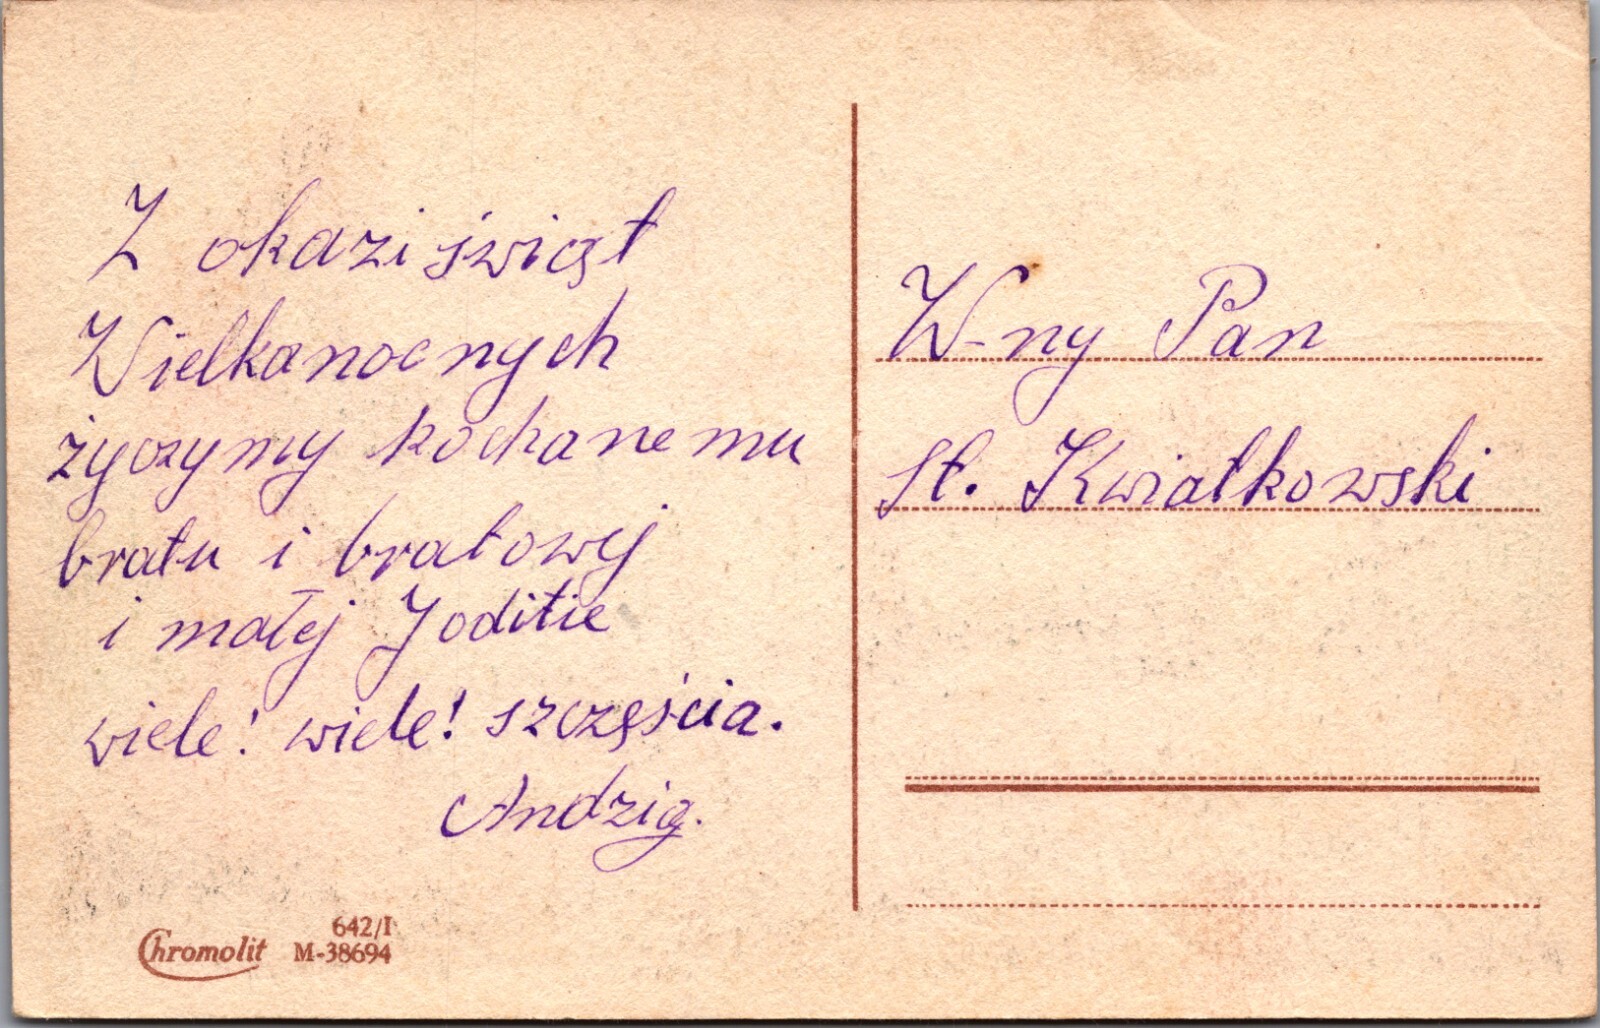 Z okazi świąt
Wielkanocnych
życzymy kochanemu
bratu i bratowej
i małej Joditie
wiele! wiele! szczęścia.
Andzia.
642/I
Chromolit M-38694
W-ny Pan
St. Kwiatkowski